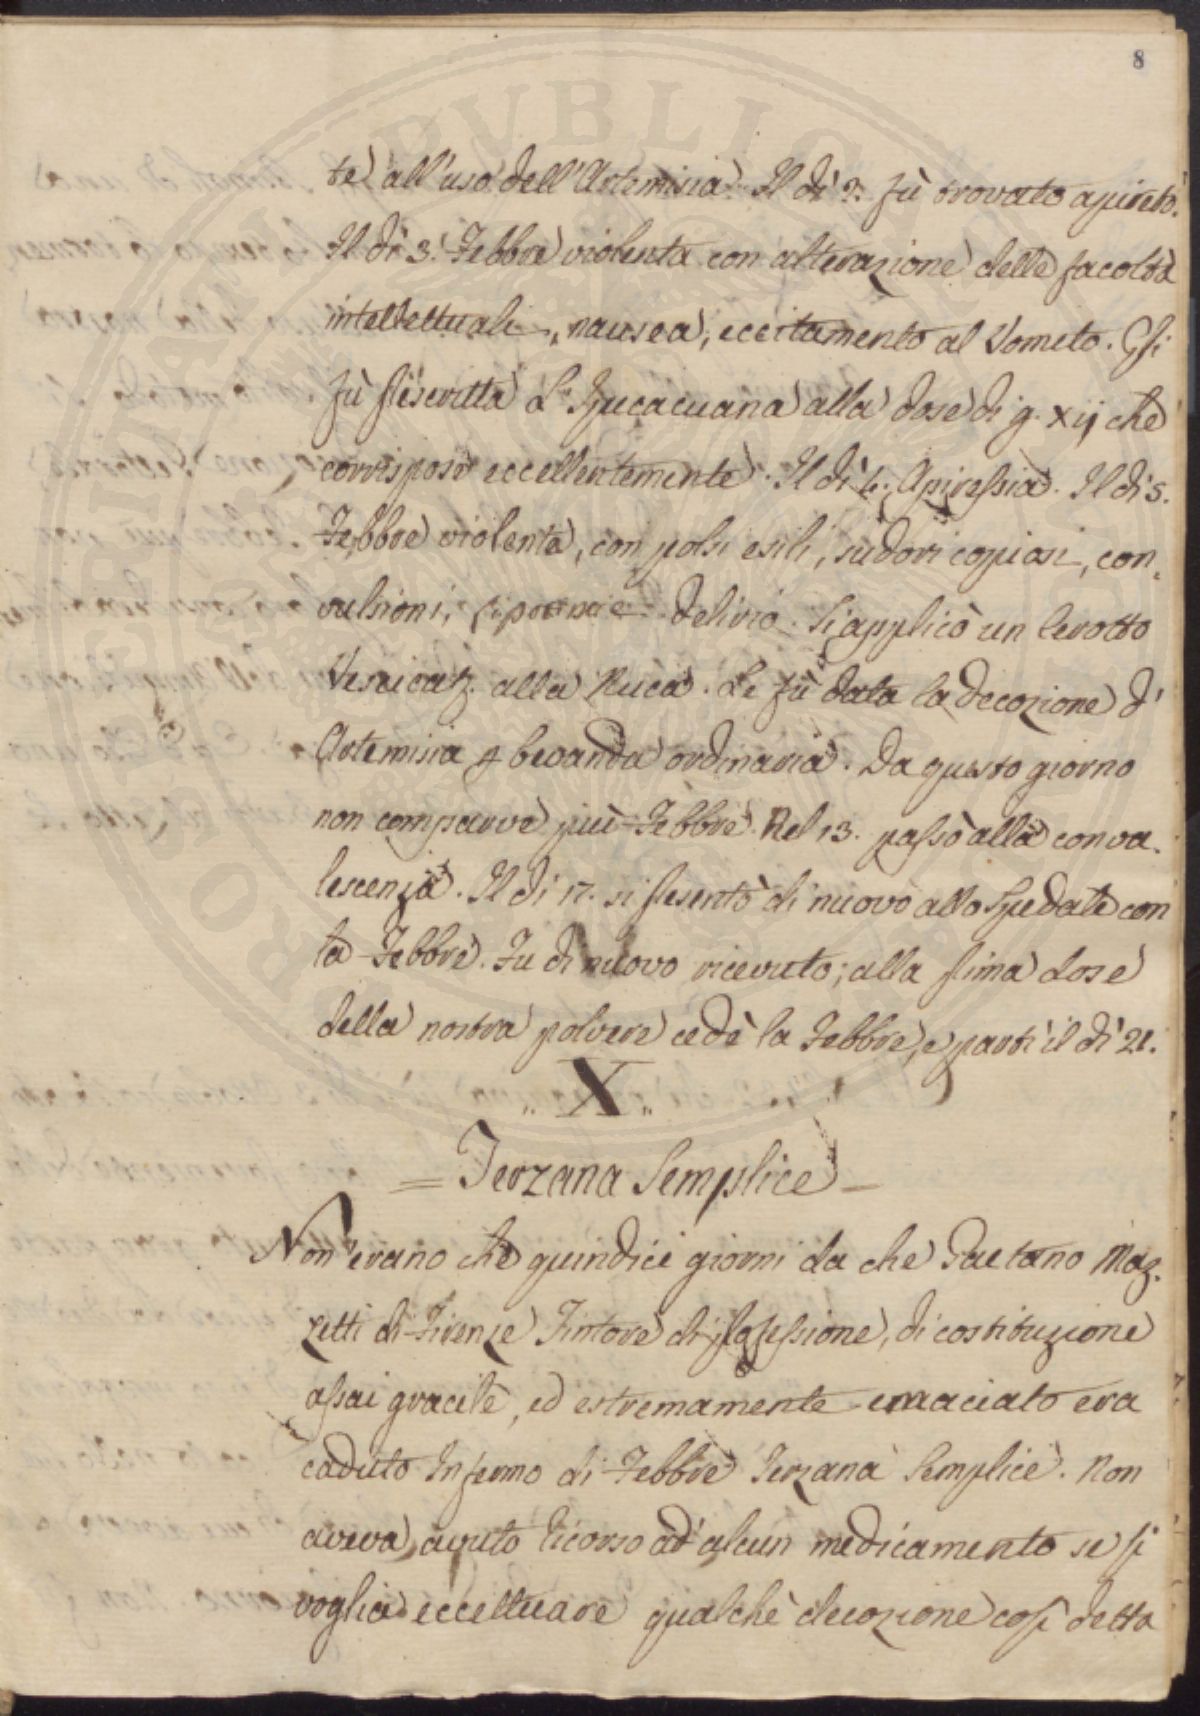 8
te all'uso dell'Artemisia. Il dì 2. fù trovato apireto.
Il dì 3. Febbre violenta con alterazione delle facoltà
intellettuali, nausea, eccitamento al Vomito. Gli
fù prescritta L'Ipucacuana alla dose di g. xij che
corrispose eccellentemente. Il dì 4. Apiressia. Il dì 5.
Febbre violenta, con polsi esili, sudori copiosi, con,
vulsioni, delirio. Si applicò un Cerotto
Vescicat. alla Nuca. Le fù data la decozione d'
Artemisia p bevanda ordinaria. Da questo giorno
non comparve più Febbre. Nel 13. passò alla conva.
lescenza. Il dì 17. si presentò di nuovo allo Spedale con
la Febbre. Fu di nuovo ricevuto; alla prima dose
della nostra polvere cedè la Febbre, e partì il dì 21.
„ X „
= Terzana Semplice =
Non erano che quindici giorni da che Gaetano Maz.
zetti di Firenze Tintore di professione, di costituzione
assai gracile, ed estremamente emaciato era
caduto Infermo di Febbre Terzana Semplice. Non
aveva avuto ricorso ad alcun medicamento se si
voglia eccettuare qualche decozione così detta
PROPERTIATI PUBLICAE